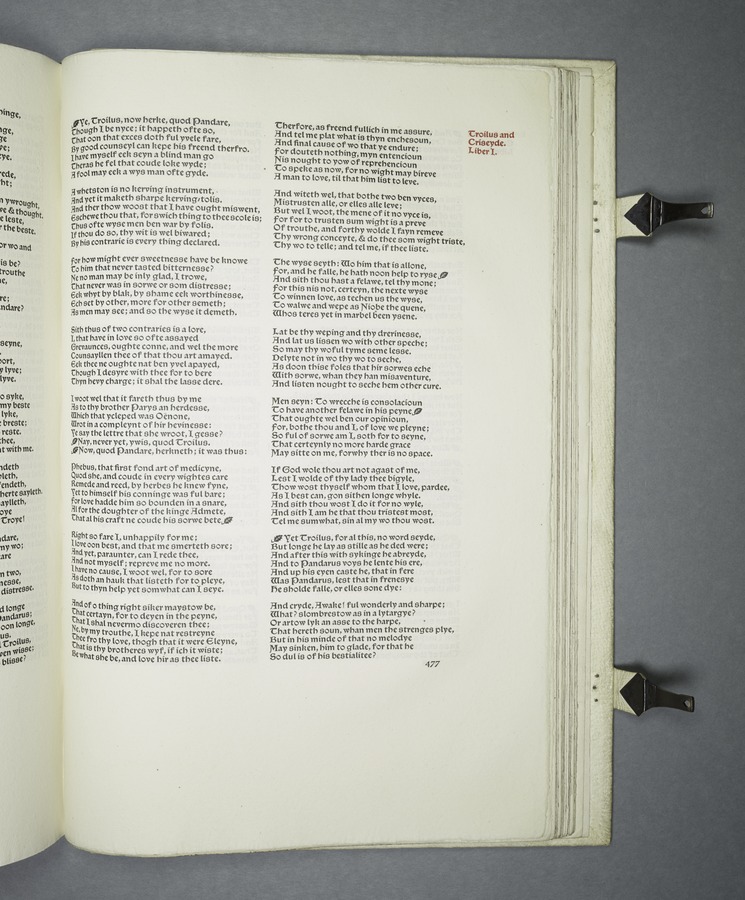 hinge,
nge,
ge
ye;
ye.
rede,
ht;
n ywrought,
ve & thought,
e leste,
r the beste.
or wo and
is be?
trouthe
re;
ndare?
seyne,
port,
y lyve;
lyve.
o syke,
my beste
lyke,
breste;
reste.
thee,
t with me.
ndeth
leth,
fendeth,
herte sayleth.
ayleth,
oye
Troye!
dare,
ny wo;
are
n two,
nesse,
distresse.
d longe
andarus;
oon longe,
us.
Troilus,
ven wisse;
blisse?
Ye, Troilus, now herke, quod Pandare,
Though I be nyce; it happeth ofte so,
That oon that exces doth ful yvele fare,
By good counseyl can kepe his freend therfro.
I have myself eek seyn a blind man go
Theras he fel that coude loke wyde;
A fool may eek a wys man ofte gyde.
A whetston is no kerving instrument,
And yet it maketh sharpe kerving/tolis.
And ther thow woost that I have ought miswent,
Eschewe thou that, for swich thing to thee scole is;
Thus ofte wyse men ben war by folis.
If thou do so, thy wit is wel biwared;
By his contrarie is every thing declared.
For how might ever sweetnesse have be knowe
To him that never tasted bitternesse?
Ne no man may be inly glad, I trowe,
That never was in sorwe or som distresse;
Eek whyt by blak, by shame eek worthinesse,
Ech set by other, more for other semeth;
As men may see; and so the wyse it demeth.
Sith thus of two contraries is a lore,
I, that have in love so ofte assayed
Grevaunces, oughte conne, and wel the more
Counsayllen thee of that thou art amayed.
Eek thee ne oughte nat ben yvel apayed,
Though I desyre with thee for to bere
Thyn hevy charge; it shal the lasse dere.
I woot wel that it fareth thus by me
As to thy brother Parys an herdesse,
Which that ycleped was Oënone,
Wrot in a compleynt of hir hevinesse:
Ye say the lettre that she wroot, I gesse?
Nay, never yet, ywis, quod Troilus.
Now, quod Pandare, herkneth; it was thus:
Phebus, that first fond art of medicyne,
Quod she, and coude in every wightes care
Remede and reed, by herbes he knew fyne,
Yet to himself his conninge was ful bare;
For love hadde him so bounden in a snare,
Al for the doughter of the kinge Admete,
That al his craft ne coude his sorwe bete.
Right so fare I, unhappily for me;
I love oon best, and that me smerteth sore;
And yet, paraunter, can I rede thee,
And not myself; repreve me no more.
I have no cause, I woot wel, for to sore
As doth an hauk that listeth for to pleye,
But to thyn help yet somwhat can I seye.
And of o thing right siker maystow be,
That certayn, for to deyen in the peyne,
That I shal nevermo discoveren thee;
Ne, by my trouthe, I kepe nat restreyne
Thee fro thy love, thogh that it were Eleyne,
That is thy brotheres wyf, if ich it wiste;
Be what she be, and love hir as thee liste.
Therfore, as freend fullich in me assure,
And tel me plat what is thyn enchesoun,
And final cause of wo that ye endure;
For douteth nothing, myn entencioun
Nis nought to yow of reprehencioun
To speke as now, for no wight may bireve
A man to love, til that him list to leve.
And witeth wel, that bothe two ben vyces,
Mistrusten alle, or elles alle leve;
But wel I woot, the mene of it no vyce is,
For for to trusten sum wight is a preve
Of trouthe, and forthy wolde I fayn remeve
Thy wrong conceyte, & do thee som wight triste,
Thy wo to telle; and tel me, if thee liste.
The wyse seyth: Wo him that is allone,
For, and he falle, he hath noon help to ryse
And sith thou hast a felawe, tel thy mone;
For this nis not, certeyn, the nexte wyse
To winnen love, as techen us the wyse,
To walwe and wepe as Niobe the quene,
Whos teres yet in marbel been ysene.
Lat be thy weping and thy drerinesse,
And lat us lissen wo with other speche;
So may thy woful tyme seme lesse.
Delyte not in wo thy wo to seche,
As doon thise foles that hir sorwes eche
With sorwe, whan they han misaventure,
And listen nought to seche hem other cure.
Men seyn: To wrecche is consolacioun
To have another felawe in his peyne
That oughte wel ben our opinioun,
For, bothe thou and I, of love we pleyne;
So ful of sorwe am I, soth for to seyne,
That certeynly no more harde grace
May sitte on me, forwhy ther is no space.
If God wole thou art not agast of me,
Lest I wolde of thy lady thee bigyle,
Thow wost thyself whom that I love, pardee,
As I best can, gon sithen longe whyle.
And sith thou wost I do it for no wyle,
And sith I am he that thou tristest most,
Tel me sumwhat, sin al my wo thou wost.
Yet Troilus, for al this, no word seyde,
But longe he lay as stille as he ded were;
And after this with sykinge he abreyde,
And to Pandarus voys he lente his ere,
And up his eyen caste he, that in fere
Was Pandarus, lest that in frenesye
He sholde falle, or elles sone dye:
And cryde, Awake! ful wonderly and sharpe;
What? slombrestow as in a lytargye?
Or artow lyk an asse to the harpe,
That hereth soun, whan men the strenges plye,
But in his minde of that no melodye
May sinken, him to glade, for that he
So dul is of his bestialitee?
477
Troilus and
Criseyde.
Liber I.